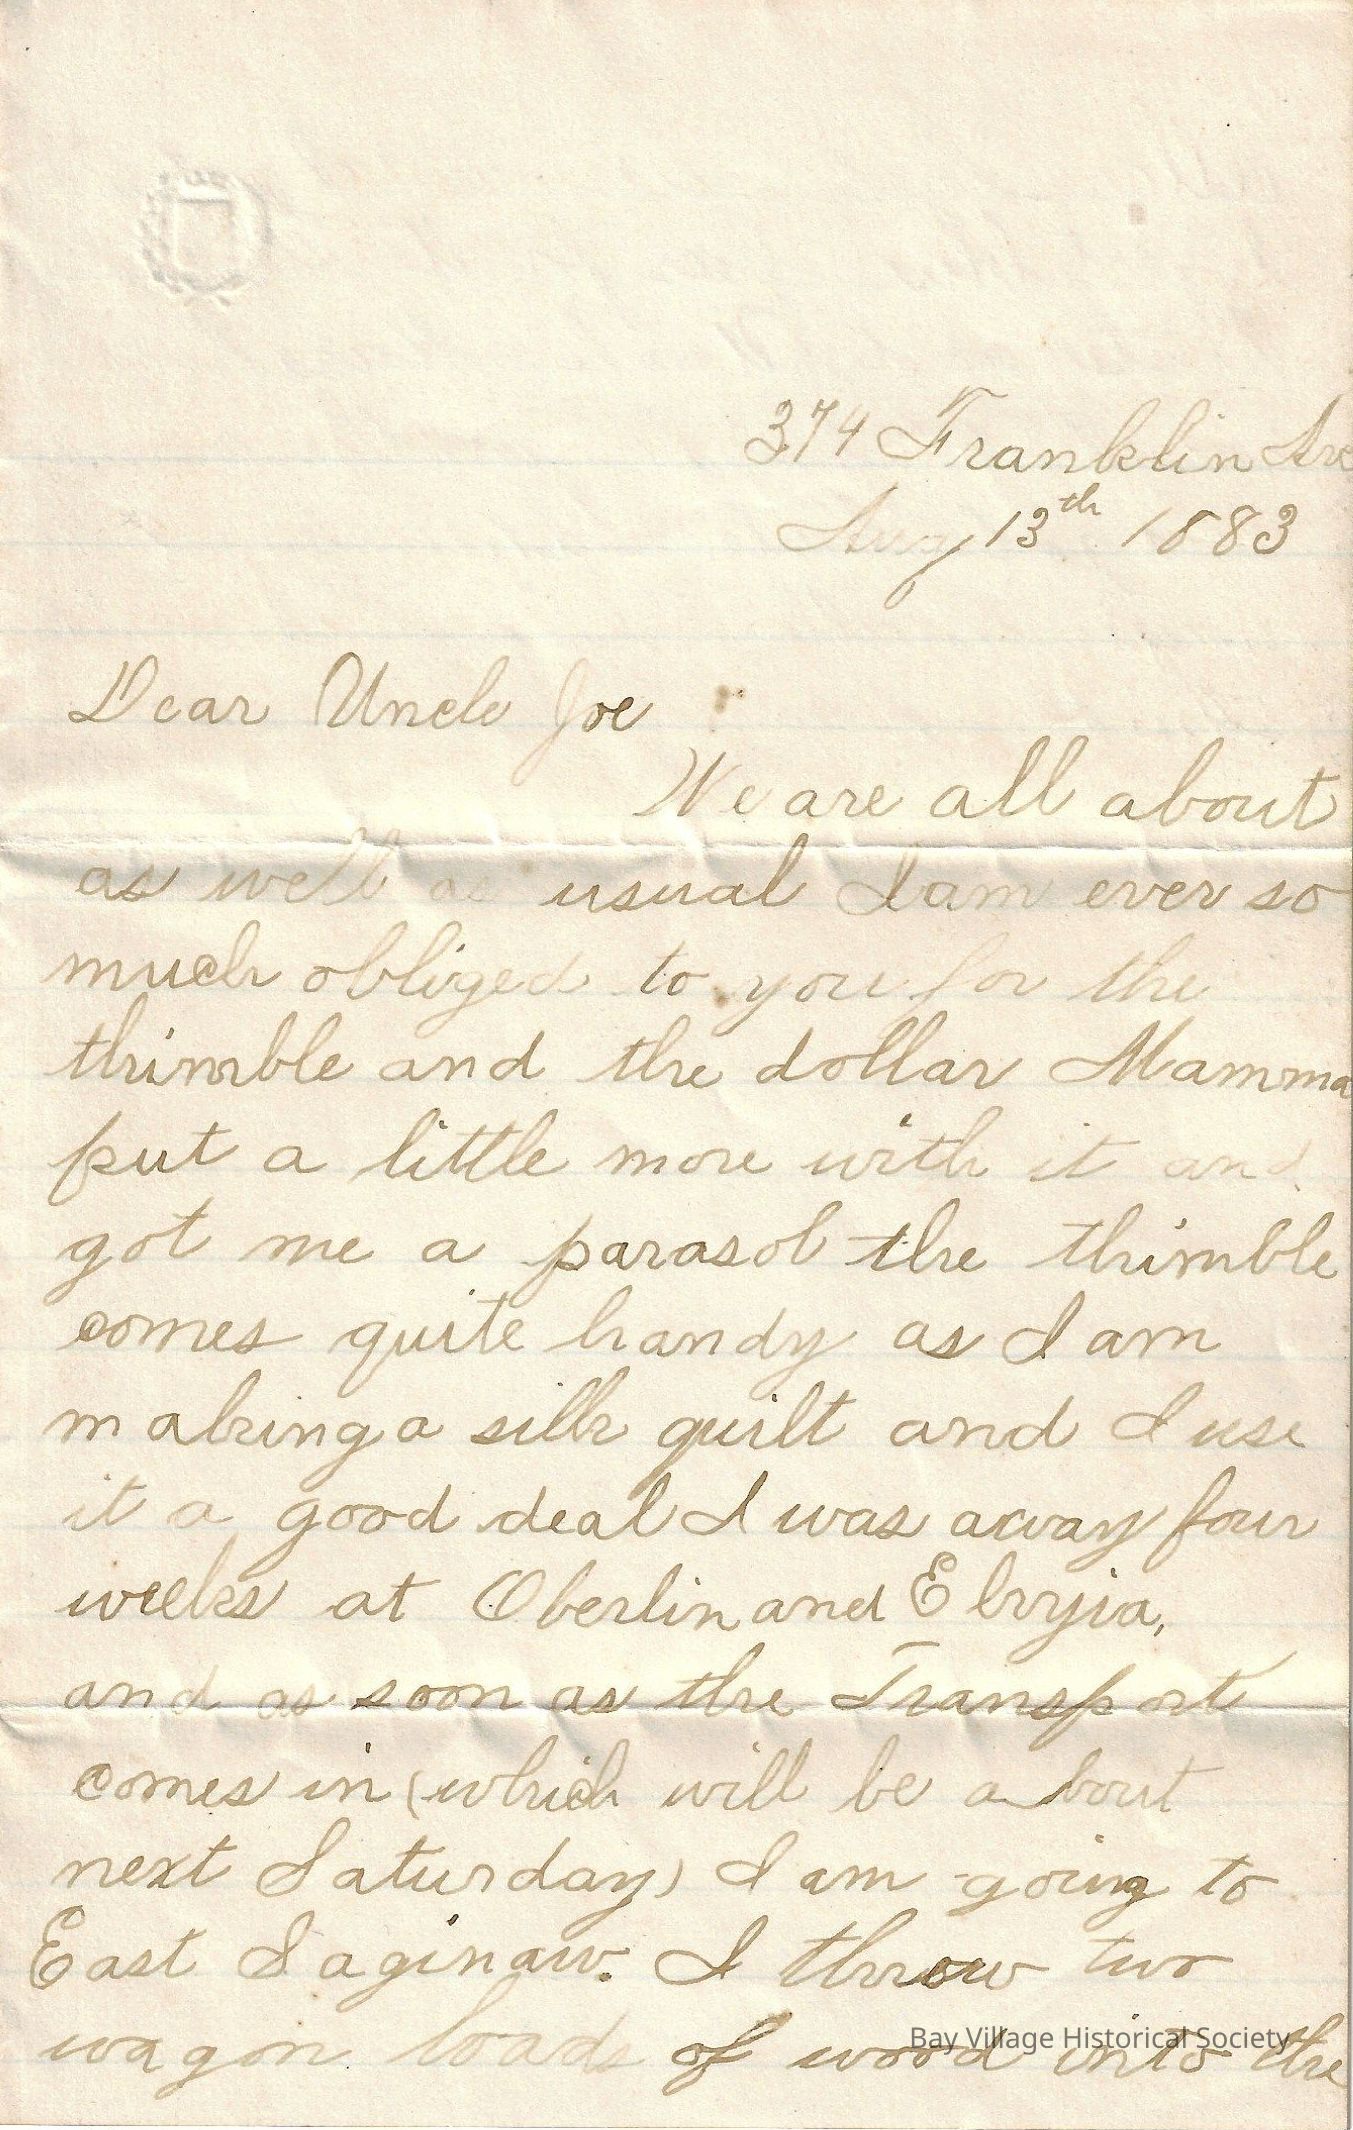 374 Franklin Ave
Aug 13th 1883
Dear Uncle Joe
We are all about
as well as usual I am ever so
much obliged to you for the
thimble and the dollar Mamma
put a little more with it and
got me a parasol the thimble
comes quite handy as I am
making a silk quilt and I use
it a good deal I was away four
weeks at Oberlin and Elryjia,
and as soon as the Transport
comes in (which will be about
next Saturday) I am going to
East Saginaw. I throw two
wagon loads of wood into the
Bay Village Historical Society